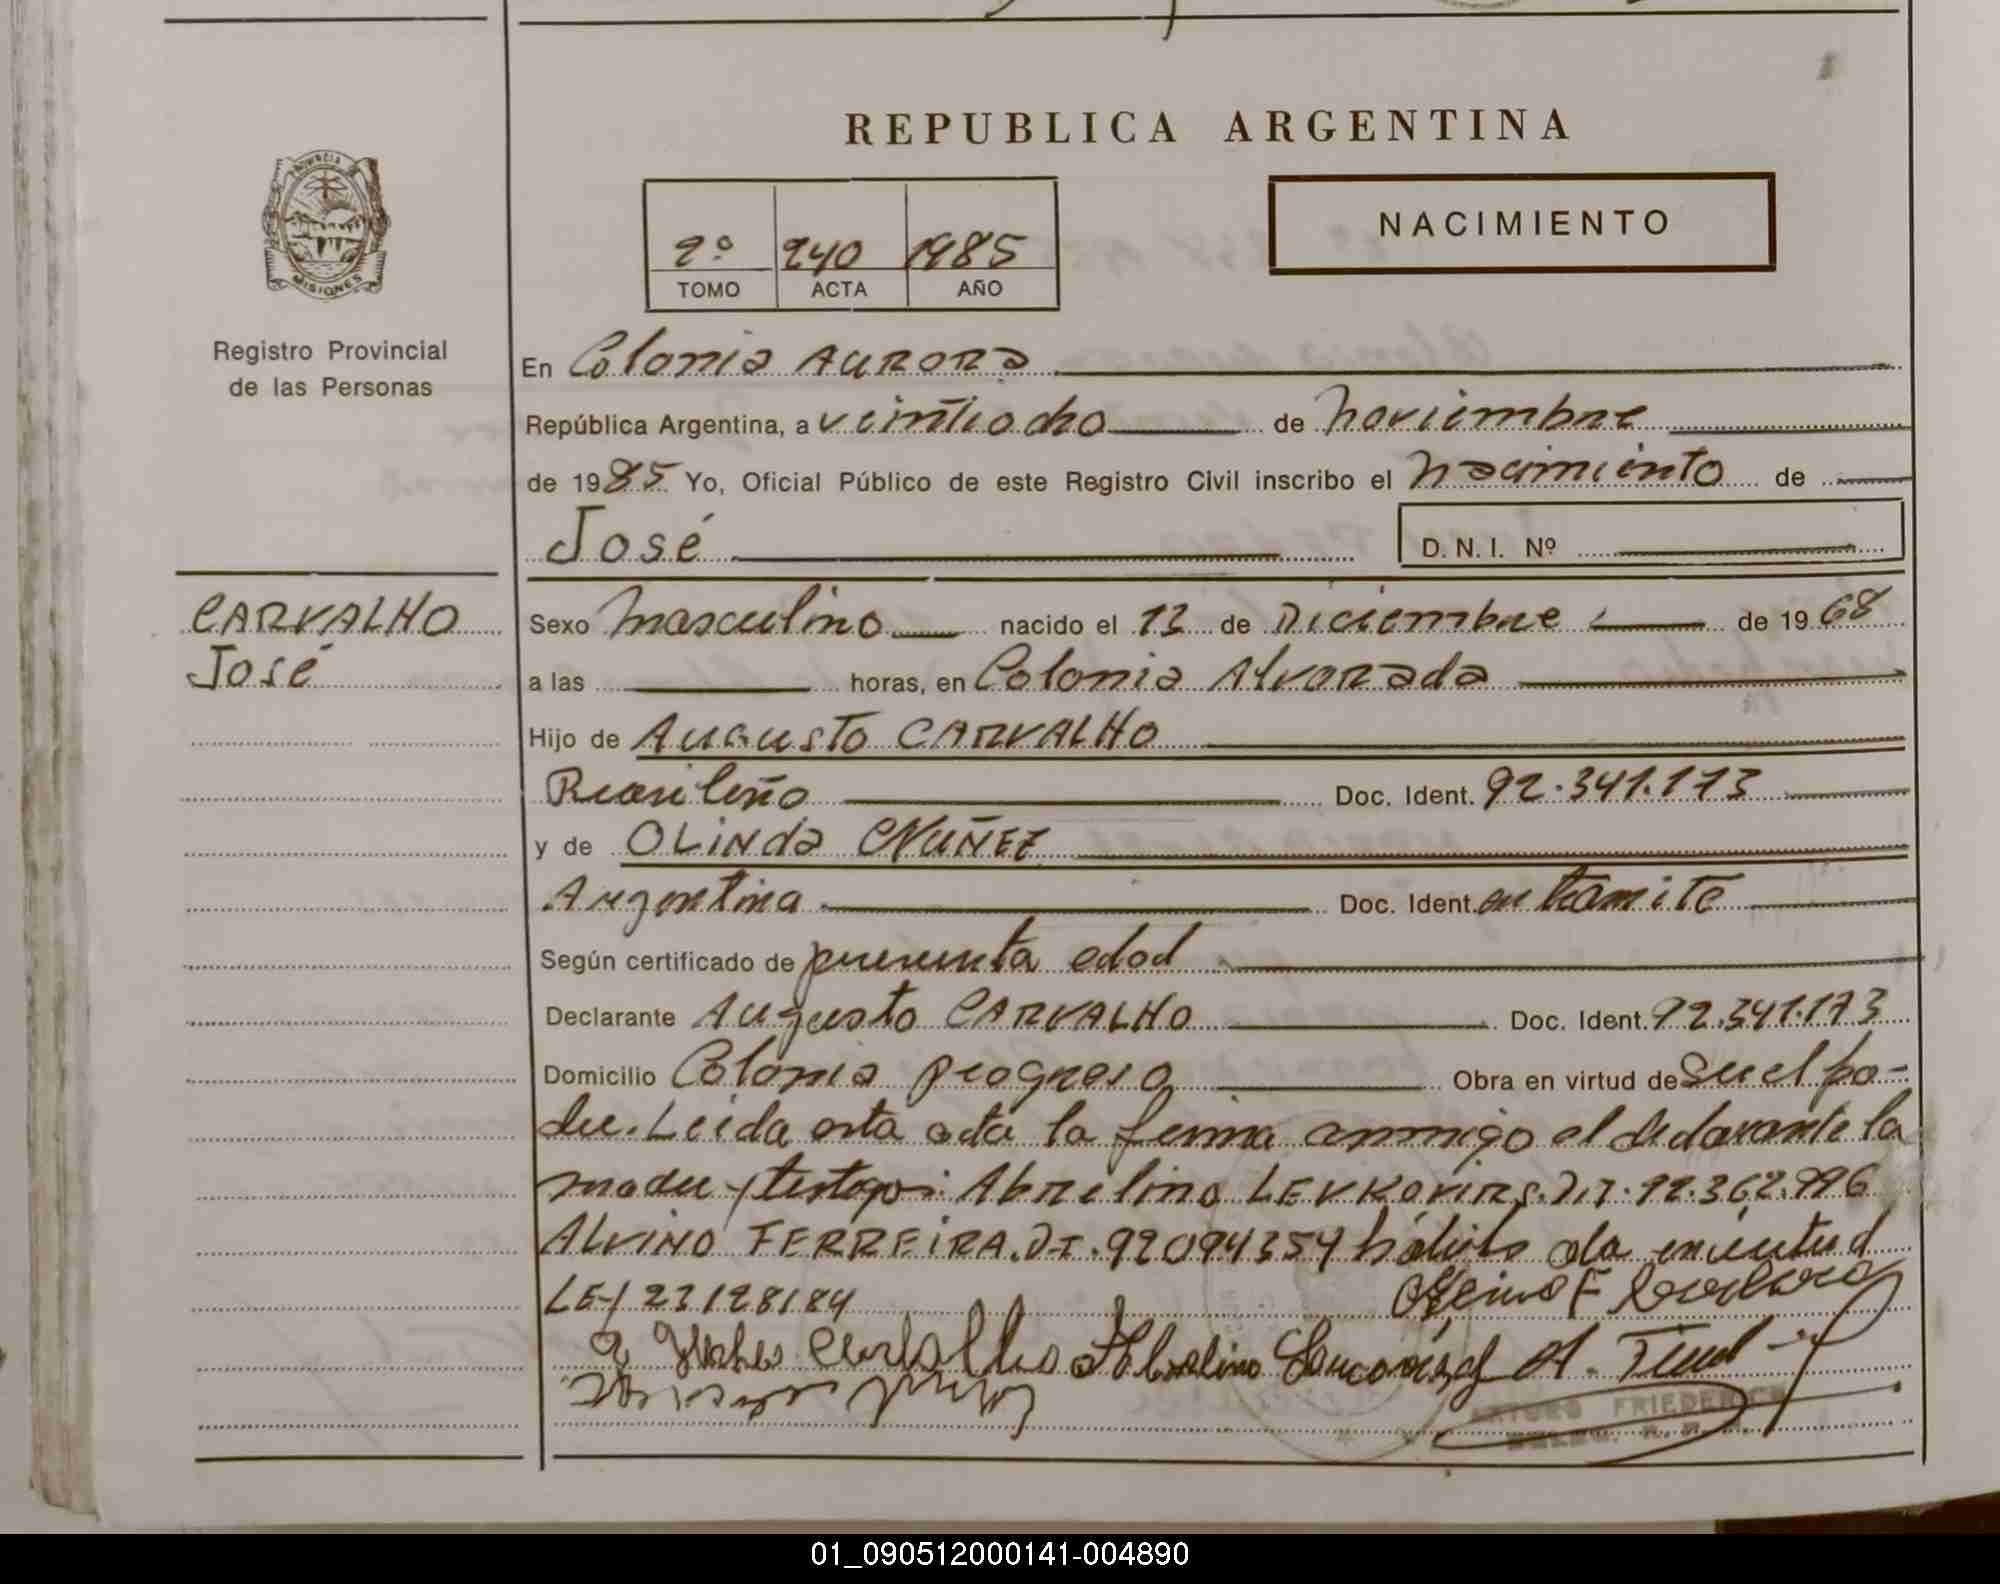 REPUBLICA ARGENTINA
NACIMIENTO
2º 240 1985
TOMO ACTA AÑO
PROVINCIA
MISIONES
Registro Provincial
de las Personas
En Colonia AURORA
República Argentina, a veintiocho de noviembre
de 1985 Yo, Oficial Público de este Registro Civil inscribo el nacimiento de
José D. N. I. Nº
CARVALHO
José
Sexo masculino nacido el 13 de Diciembre de 1968
a las horas, en Colonia Alvorada
Hijo de Augusto CARVALHO
Brasileño Doc. Ident. 92.341.173
y de OLINDA NUÑEZ
Argentina Doc. Ident. en tramite
Según certificado de presunta edad
Declarante Augusto CARVALHO Doc. Ident. 92.341.173
Domicilio Colonia progreso Obra en virtud de ser el pa-
dre. Leida esta acta la firma conmigo el declarante la
madre y testigos: Abrelino D.I. 92.362.996
ALVINO FERREIRA. D.I. 92094354 en virtud
LEY 23128/84
ARTURO FRIEDERICH
01_090512000141-004890